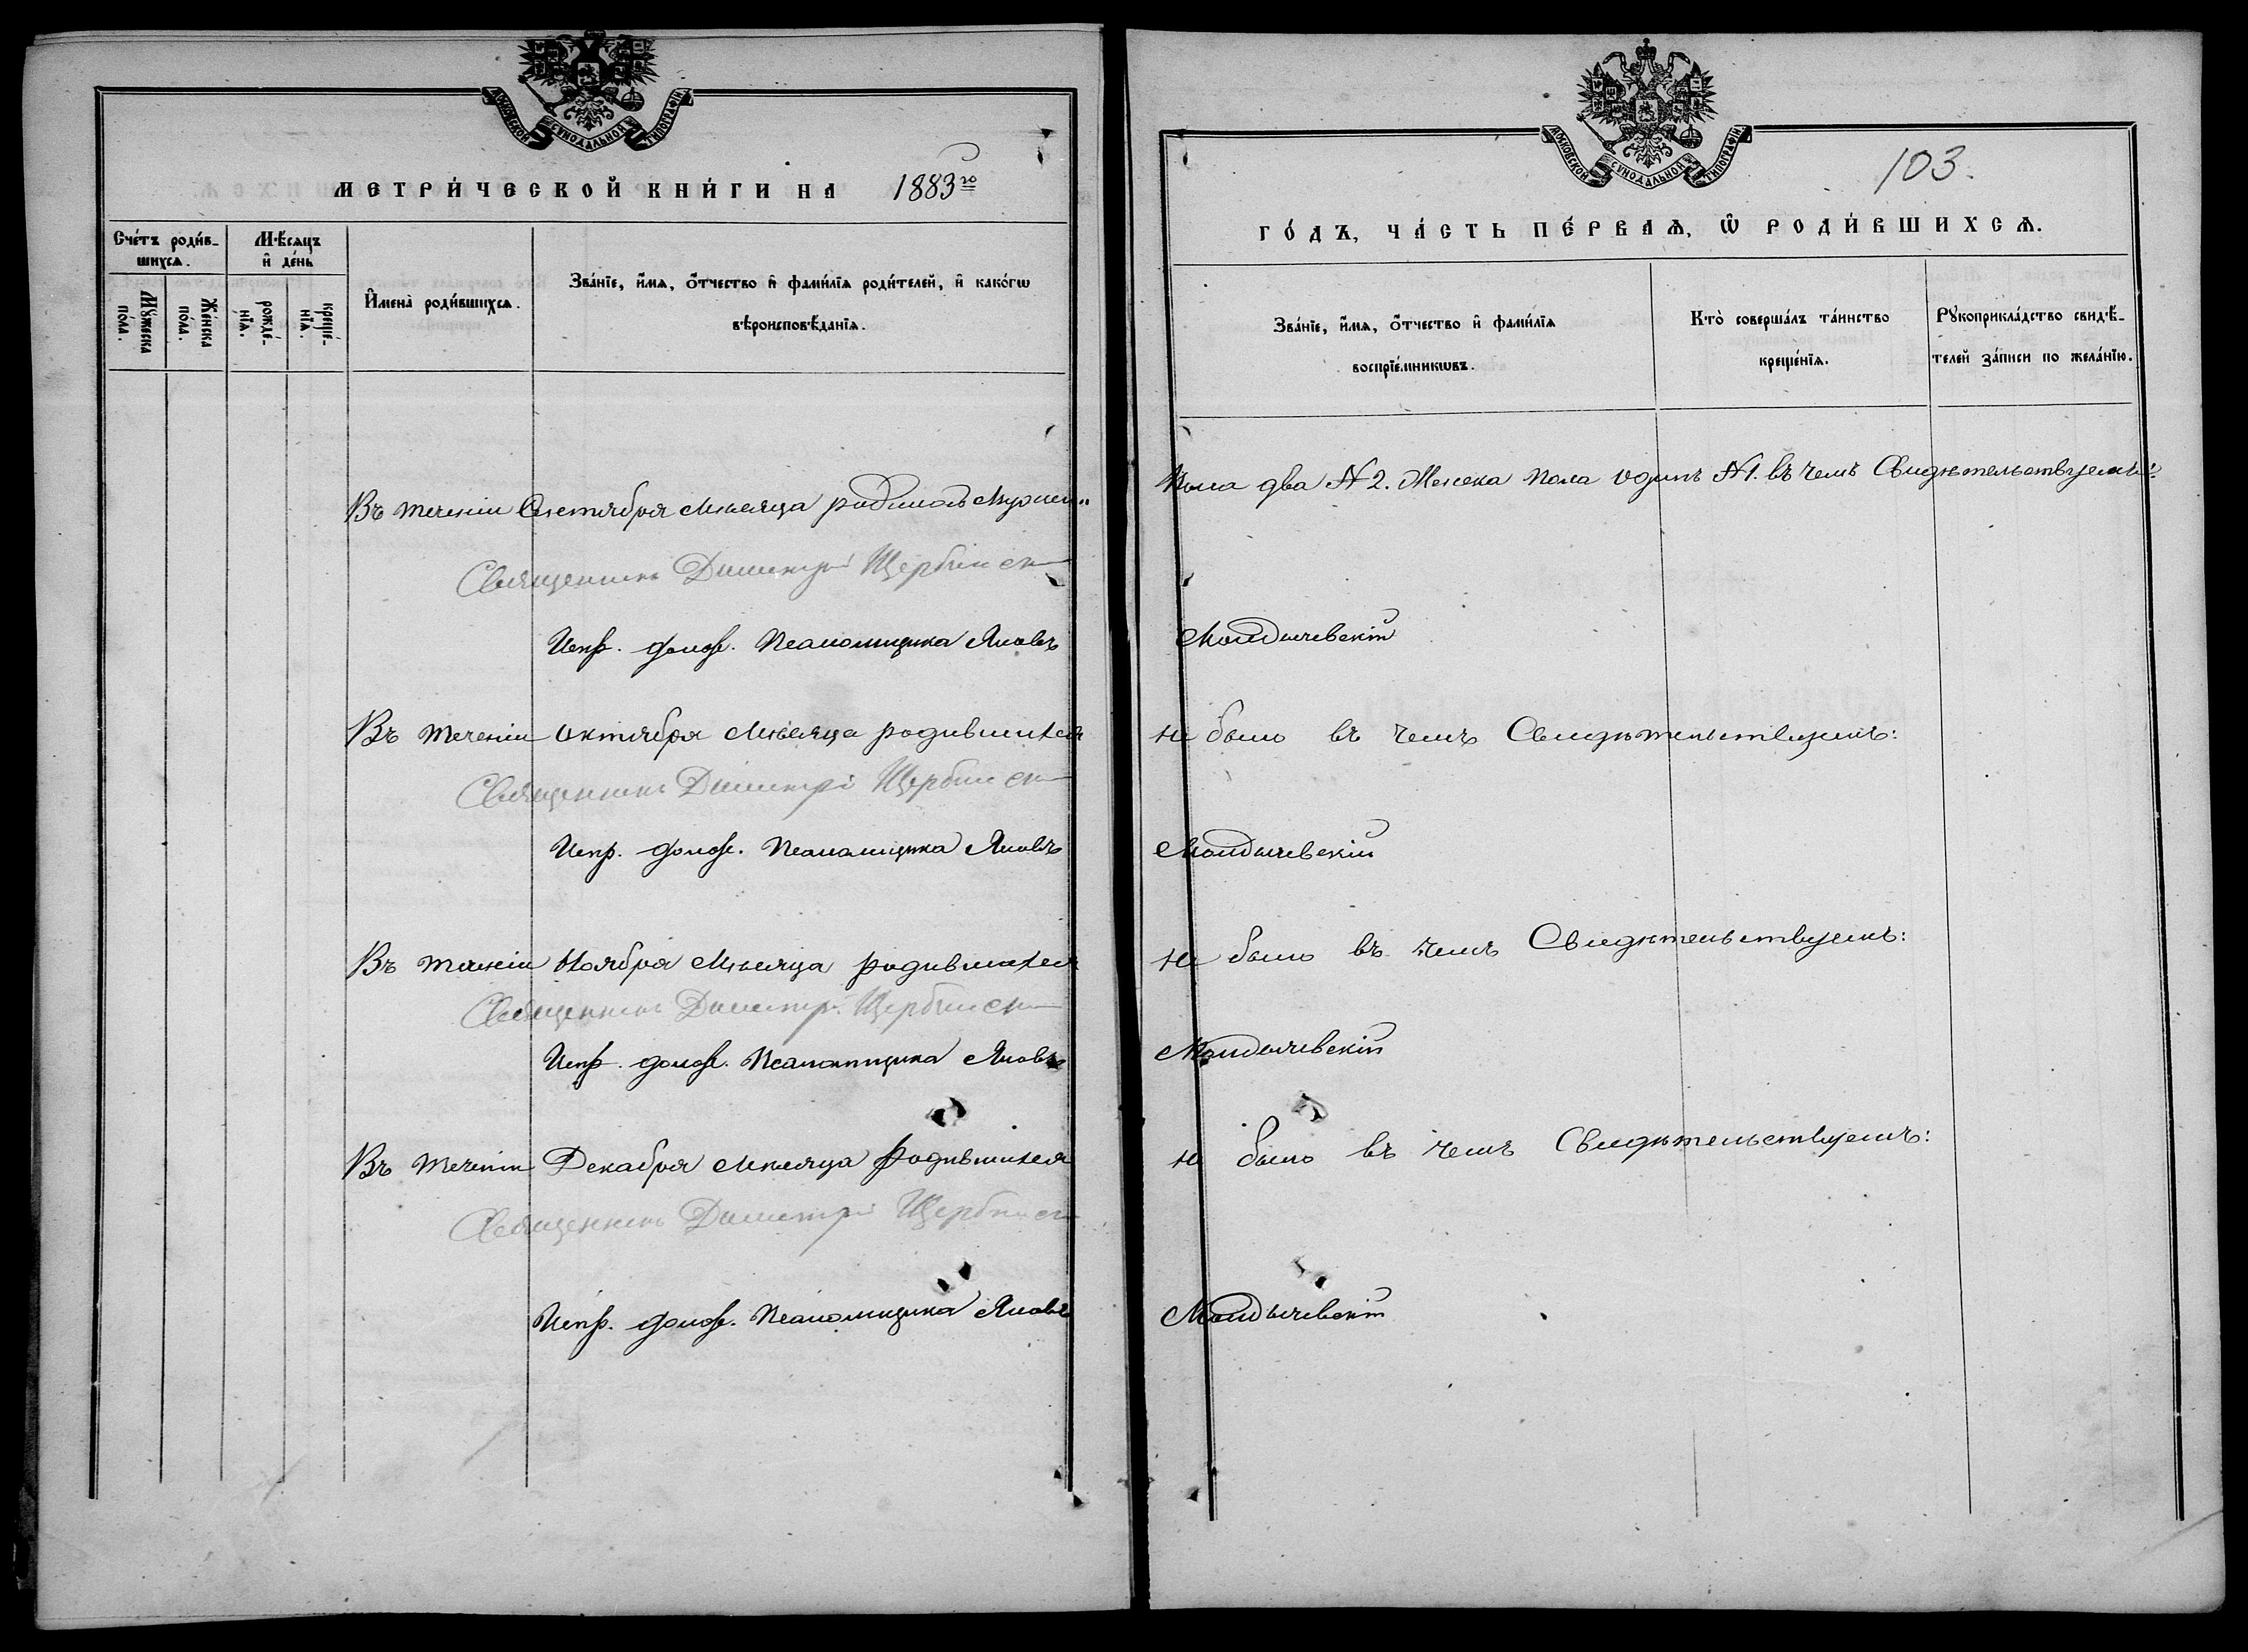 МОСКОВСКОЙ СУНОДАЛЬНОЙ ТИПОГРАФІИ
МЕТРИ́ЧЕСКОЙ КНИ́ГИ НА 1883го
Сче́тъ роди́в-
шихсѧ.
Мѣ́сѧцъ
и҆ де́нь
Мꙋ́жеска
по́ла.
Же́нска
по́ла.
рожде́-
нїѧ.
креще́-
нїѧ.
И҆мена̀ роди́вшихсѧ.
Зва́нїе, и҆́мѧ, ѻ҆́тчество и҆ фами́лїѧ роди́телей, и҆ како́гѡ
вѣроисповѣ́данїѧ.
Въ теченіи Сентября мѣсяца родилось Мужеск
Священникъ Димитрій Щербинск
Испр. долж. Псаломщика Яковъ
Въ теченіи октября мѣсяца родившихся
Священникъ Димитрі Щербинск
Испр. долж. Псаломщика Яковъ
Въ теченіи Ноября мѣсяца родившихся
Священникъ Димитр. Щербинск
Испр. долж. Псаломщика Яковъ
Въ теченіи Декабря мѣсяца родившихся
Священникъ Димитрій Щербинск
Испр. долж. Псаломщика Яковъ
МОСКОВСКОЙ СУНОДАЛЬНОЙ ТИПОГРАФІИ
103.
ГО́ДЪ, ЧА́СТЬ ПЕ́РВАѦ, Ѡ҆ РОДИ́ВШИХСѦ.
Зва́нїе, и҆́мѧ, ѻ҆́тчество и҆ фами́лїѧ
воспрїе́мникѡвъ.
Кто̀ соверша́лъ та́инство
креще́нїѧ.
Рꙋкоприкла́дство свидѣ́-
телей за́писи по жела́нїю.
Пола два №2. Женска пола одинъ №1. въ чемъ Свидѣтельствуемъ:
Молдычевскій
не было въ чемъ Свидѣтельствуемъ:
Молдычевскій
не было въ чемъ Свидѣтельствуемъ:
Молдычевскій
не было въ чемъ Свидѣтельствуемъ:
Молдычевскій